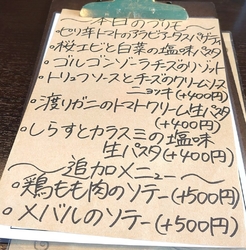 〜本日のつりモ〜
・セリ 年トマトのアラビアータスパゲティ
・桜エビと白菜の塩味パスタ
・ゴルゴンゾーラチーズのリゾット
・トリュフソースとチーズのクリームソース
ニョッキ(+400円)
・渡りガニのトマトクリーム生パスタ
(+400円)
・しらすとカラスミの塩味
生パスタ(+400円)
〜追加メニュー〜
・鶏もも肉のソテー(+500円)
・メバルのソテー(+500円)